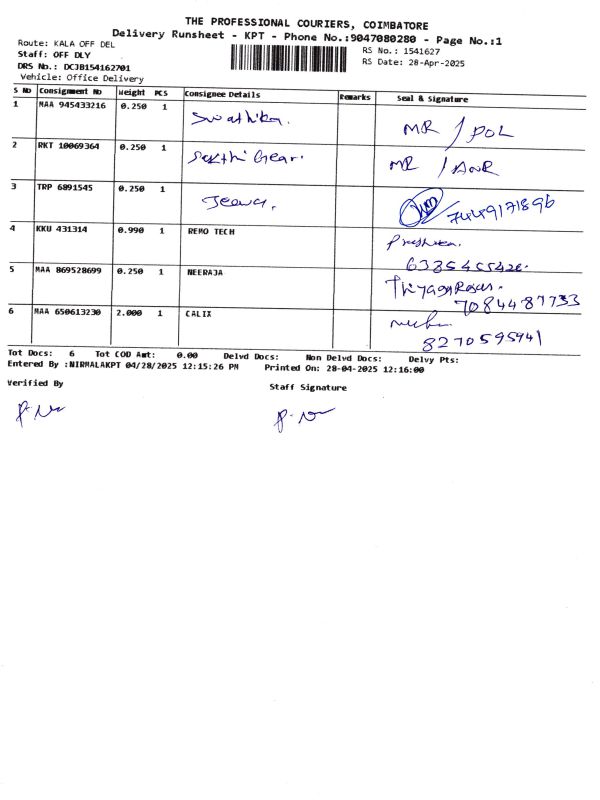 THE PROFESSIONAL COURIERS, COIMBATORE
Delivery Runsheet - KPT - Phone No.:9047080280 - Page No.:1
Route: KALA OFF DEL RS No.: 1541627
Staff: OFF DLY RS Date: 28-Apr-2025
DRS No.: DCJB154162701
Vehicle: Office Delivery
S No Consignment No Weight PCS Consignee Details Remarks Seal & Signature
1 MAA 945433216 0.250 1 Swathika. MR / POL
2 RKT 10069364 0.250 1 Sakthi Gear. MR / ANR
3 TRP 6891545 0.250 1 Jeeva. /7449171896
4 KKU 431314 0.990 1 REMO TECH
6385455426.
5 MAA 869528699 0.250 1 NEERAJA
7084487733
6 MAA 650613230 2.000 1 CALIX
8270595941
Tot Docs: 6 Tot COD Amt: 0.00 Delvd Docs: Non Delvd Docs: Delvy Pts:
Entered By :NIRMALAKPT 04/28/2025 12:15:26 PM Printed On: 28-04-2025 12:16:00
Verified By Staff Signature